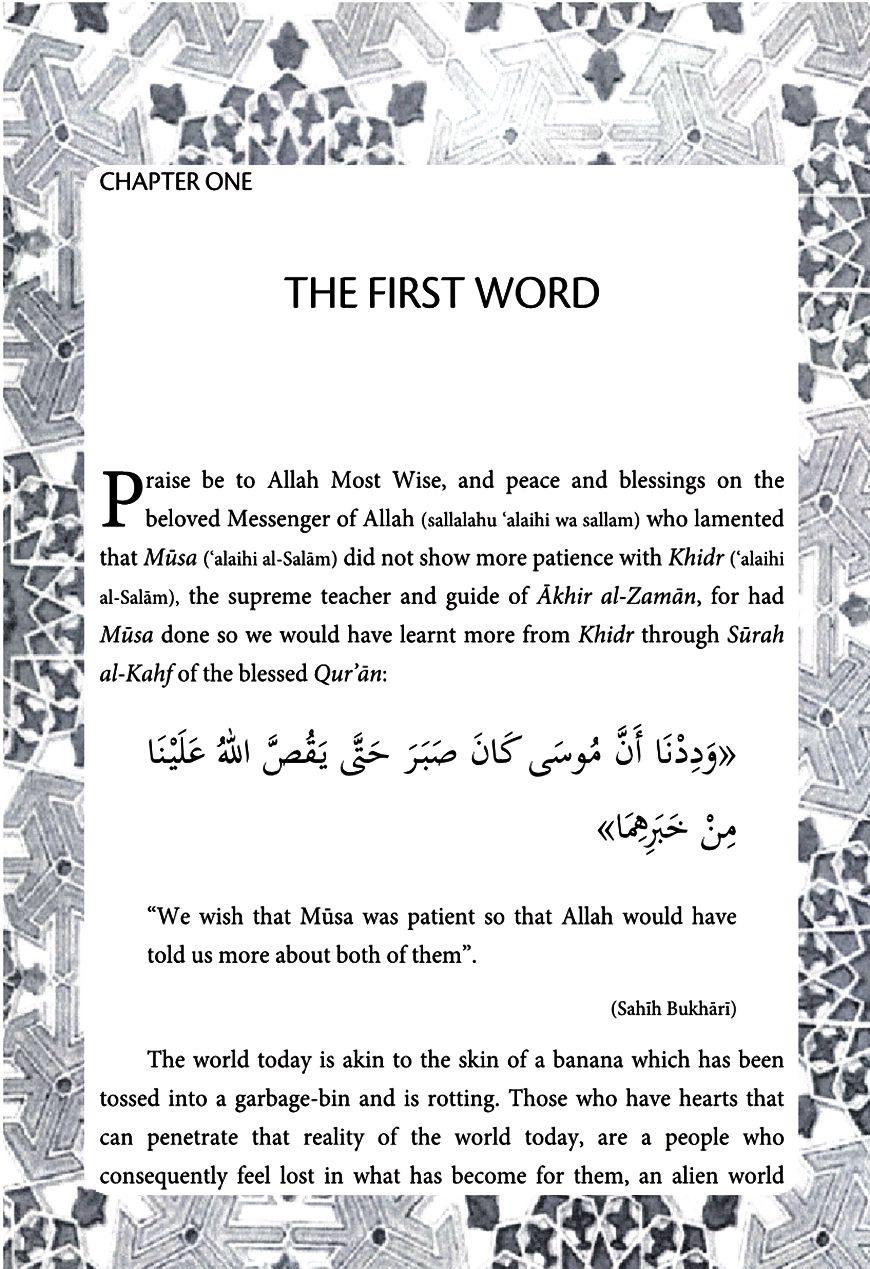 CHAPTER ONE
THE FIRST WORD
Praise be to Allah Most Wise, and peace and blessings on the
beloved Messenger of Allah (sallalahu ‘alaihi wa sallam) who lamented
that Mūsa (‘alaihi al-Salām) did not show more patience with Khidr (‘alaihi
al-Salām), the supreme teacher and guide of Ākhir al-Zamān, for had
Mūsa done so we would have learnt more from Khidr through Sūrah
al-Kahf of the blessed Qur’ān:
«وَدِدْنَا أَنَّ مُوسَى كَانَ صَبَرَ حَتَّى يَقُصَّ اللهُ عَلَيْنَا
مِنْ خَبَرِهِمَا»
“We wish that Mūsa was patient so that Allah would have
told us more about both of them”.
(Sahīh Bukhārī)
The world today is akin to the skin of a banana which has been
tossed into a garbage-bin and is rotting. Those who have hearts that
can penetrate that reality of the world today, are a people who
consequently feel lost in what has become for them, an alien world